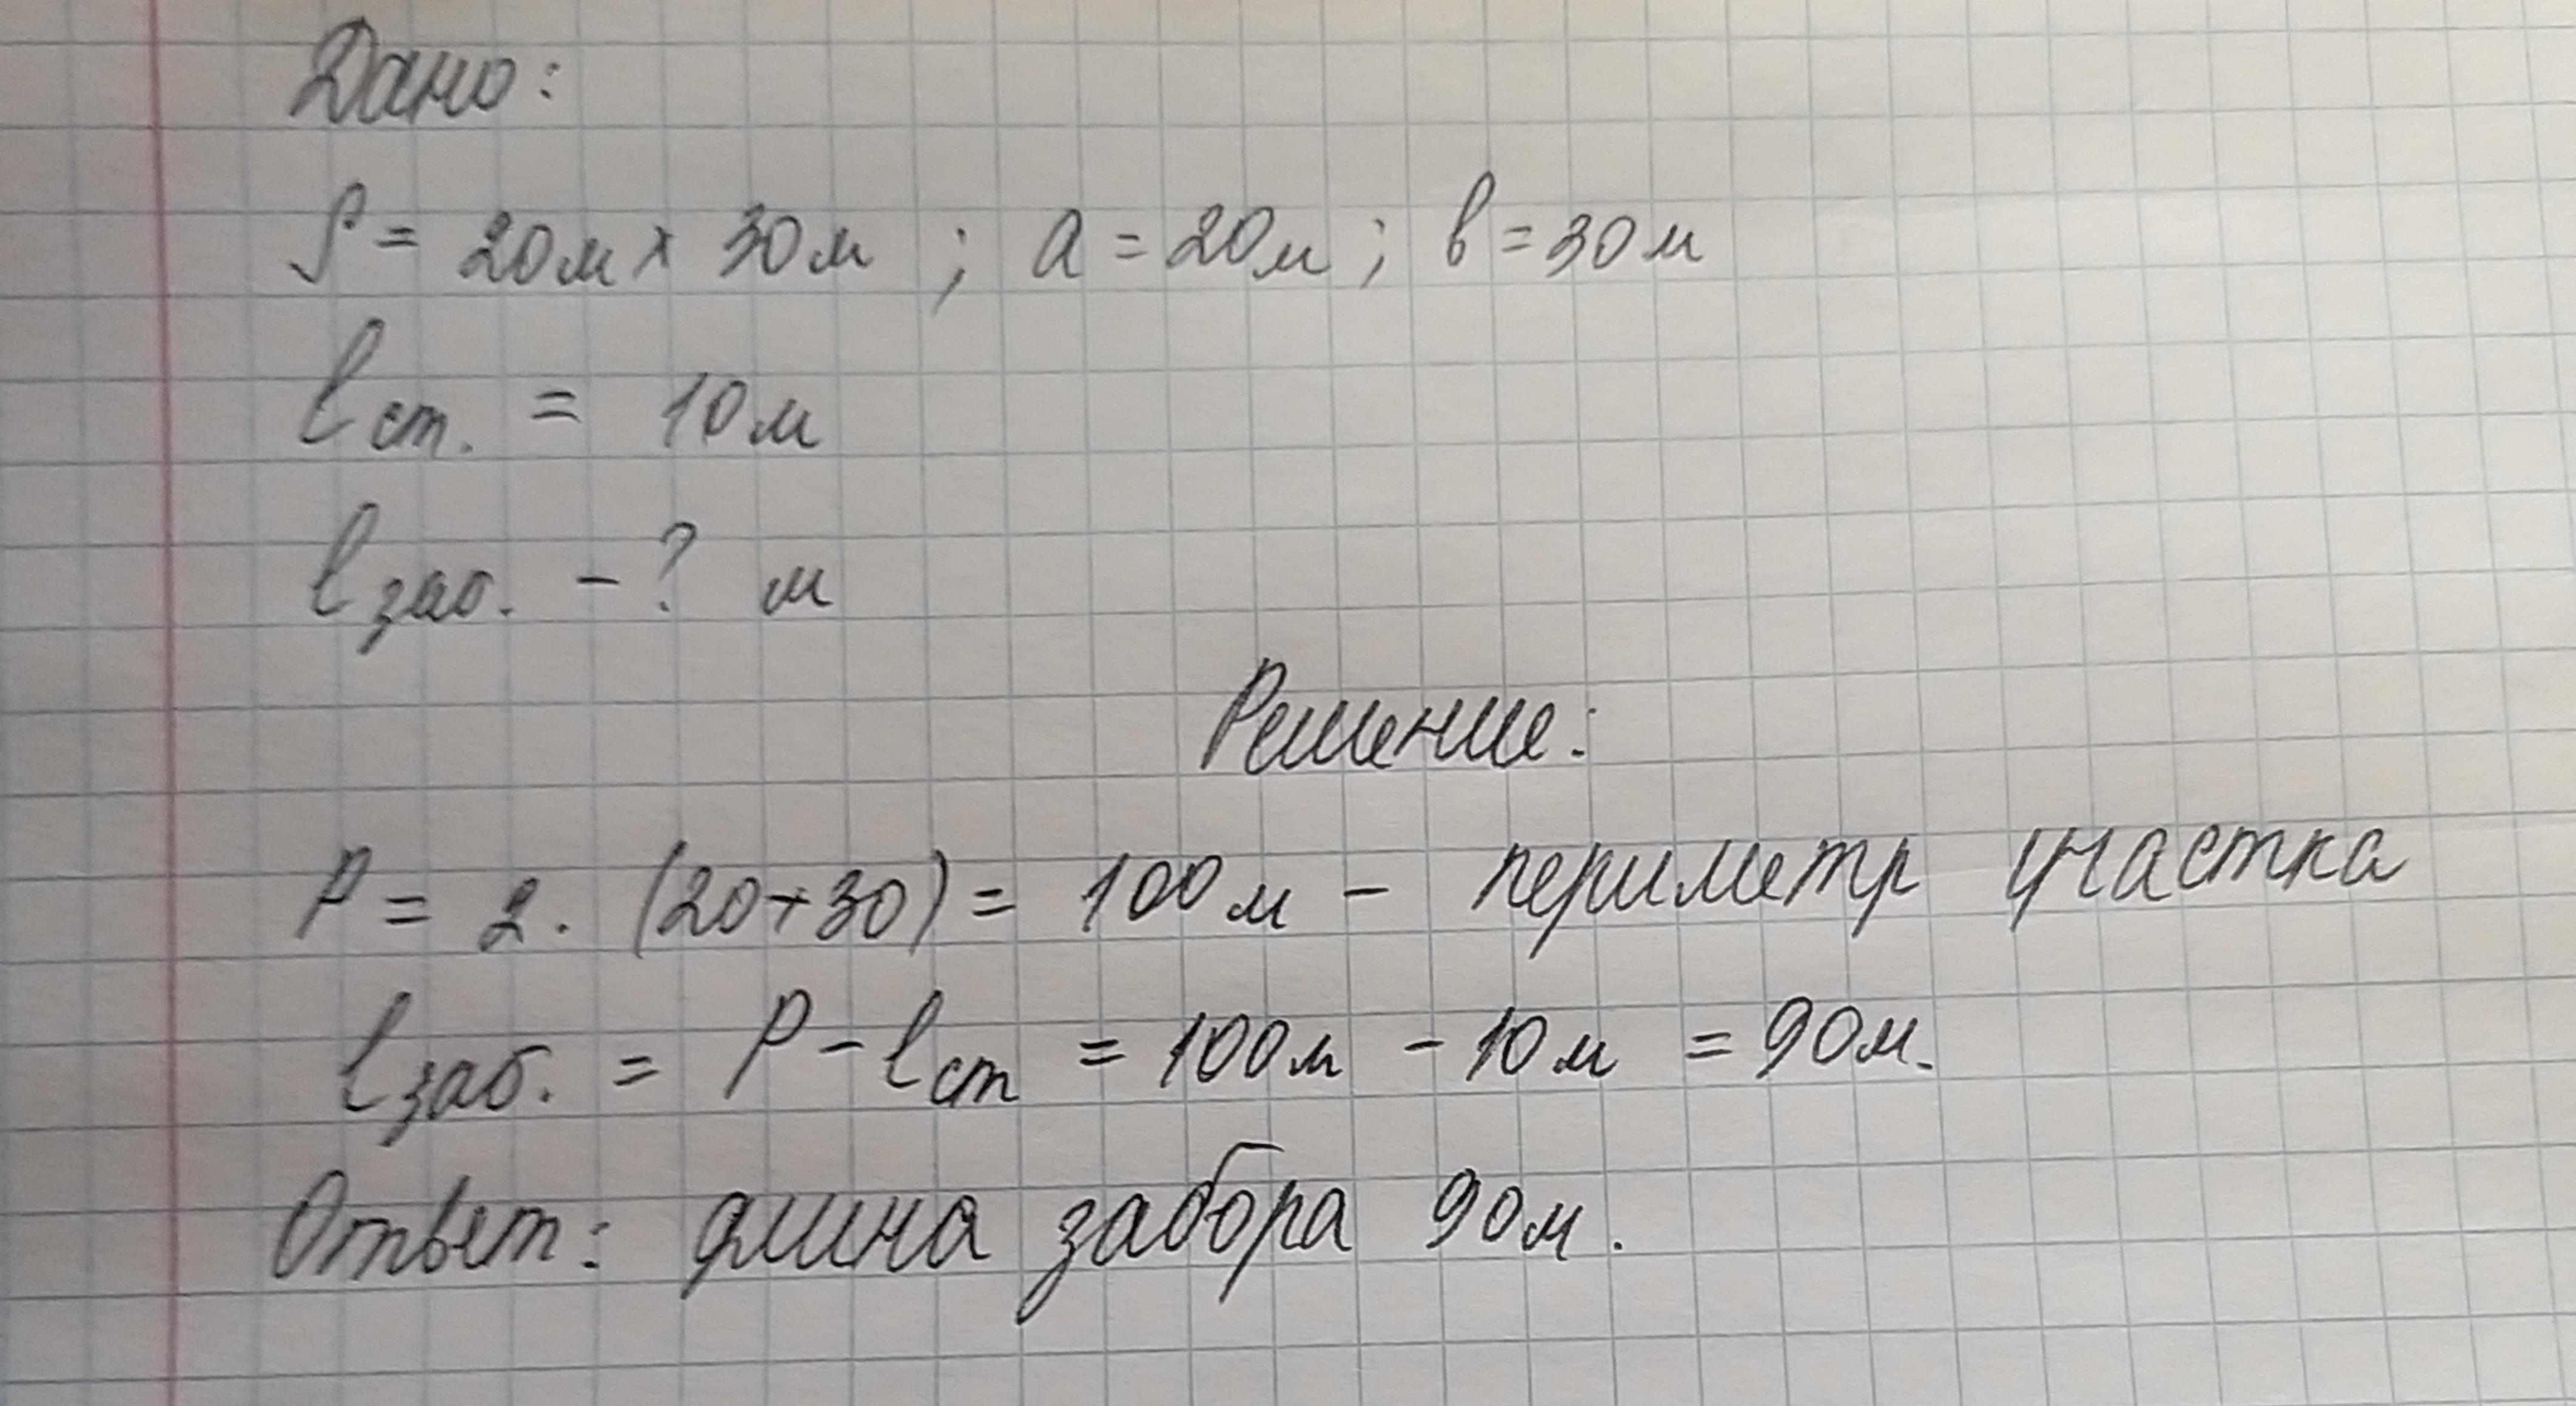 Дано:
S = 20м х 30м ; а = 20м ; в = 30м
lст. = 10м
lзаб. - ? м
Решение:
P = 2 . (20+30) = 100м - периметр участка
lзаб. = P - lст = 100м - 10м = 90м.
Ответ: длина забора 90м.